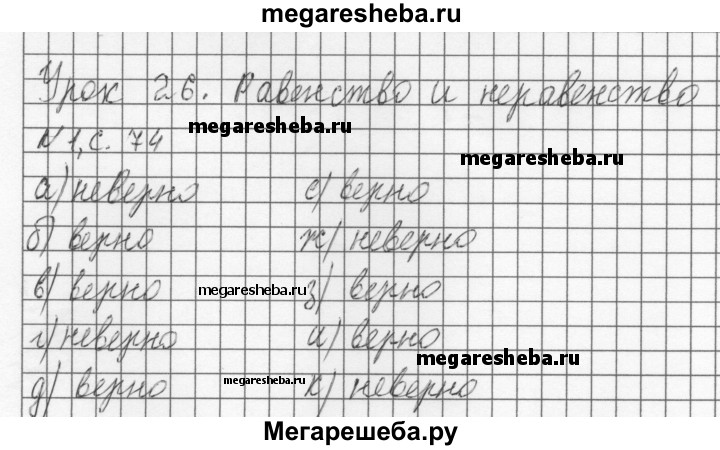 megaresheba.ru
Урок 26. Равенство и неравенство
megaresheba.ru
N 1, с. 74
megaresheba.ru
а) неверно е) верно
б) верно ж) неверно
в) верно megaresheba.ru з) верно
г) неверно и) верно
megaresheba.ru
д) верно megaresheba.ru к) неверно
Мегарешеба.ру